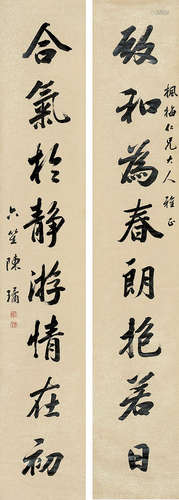 楓梅仁兄大人雅正
致和為春朗抱若日
合氣於靜游情在初
六笙陳璚